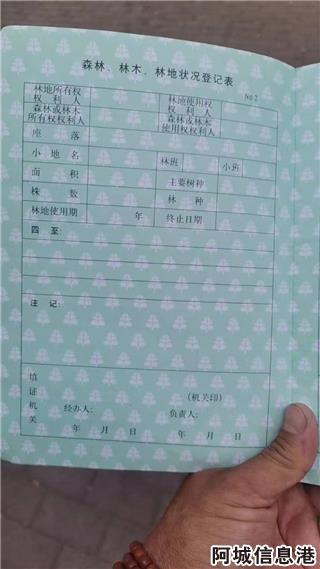 森林、林木、林地状况登记表
No 2
林地所有权权利人 林地使用权权利人
森林或林木所有权权利人 森林或林木使用权权利人
座落
小地名 林班 小班
面积 主要树种
株数 林种
林地使用期 年 终止日期
四至:
注记:
填证机关
(机关印)
经办人: 负责人:
年 月 日 年 月 日
阿城信息港